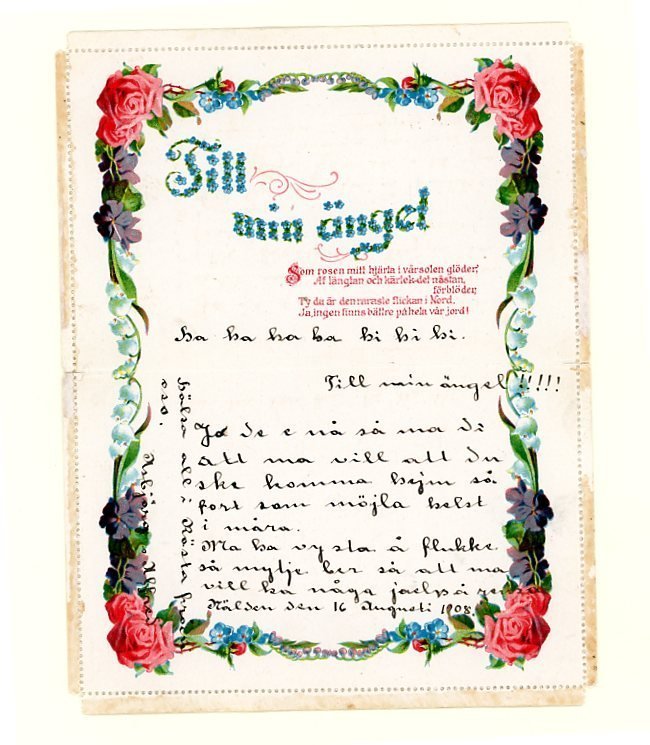 Till
min ängel
Som rosen mitt hjärta i vårsolen glöder!
Af längtan och kärlek det nästan
förblöder,
Ty du är den raraste flickan i Nord,
Ja, ingen finns bättre på hela vår jord!
ha ha ha ha hi hi hi.
Till min ängel!!!!!
Ja de e nå så ma di
att ma vill att du
ske komma hejm så
fort som möjla helst
i måra.
Ma ha vysta å flukke
så mytje ber så att ma
vill ha någa jaelpå
Nälden den 16 Augusti 1908.
hälsa all i Rösta från
oss.